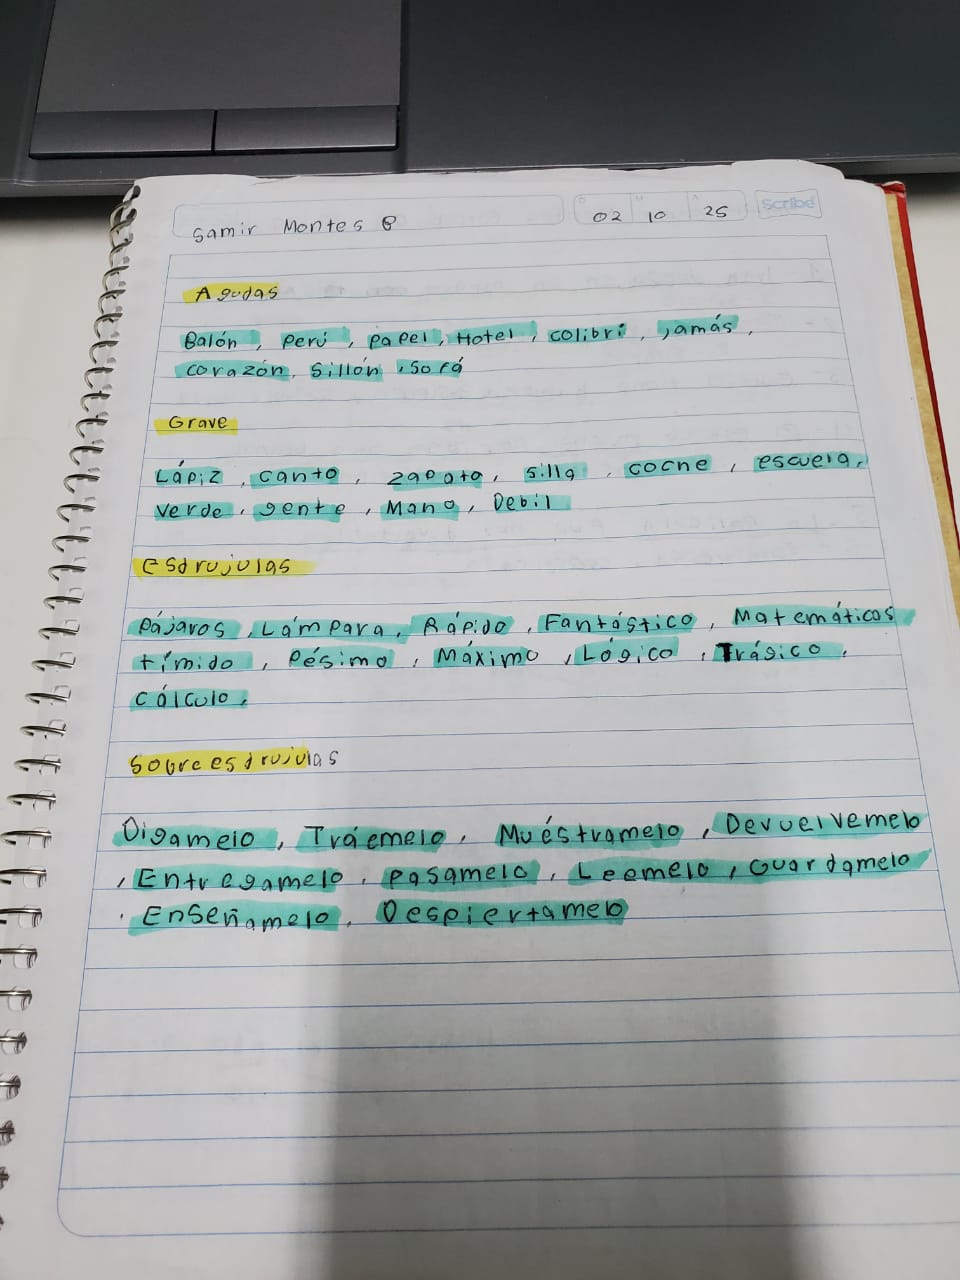 Samir Montes G
02 10 25
Scribe
Agudas
Balón, Perú, papel, Hotel, colibrí, jamás,
corazón, sillón, sofá
Grave
Lápiz, canto, zapato, silla, coche, escuela,
verde, gente, Mano, Debil
esdrujulas
Pájaros, Lámpara, Rápido, Fantástico, Matemáticos
tímido, Pésimo, Máximo, Lógico, Trágico,
cálculo,
Sobreesdrujulas
Digamelo, Tráemelo, Muéstramelo, Devuelvemelo
, Entregamelo, pasamelo, Leemelo, Guardamelo
, Enseñamelo, Despiertamelo